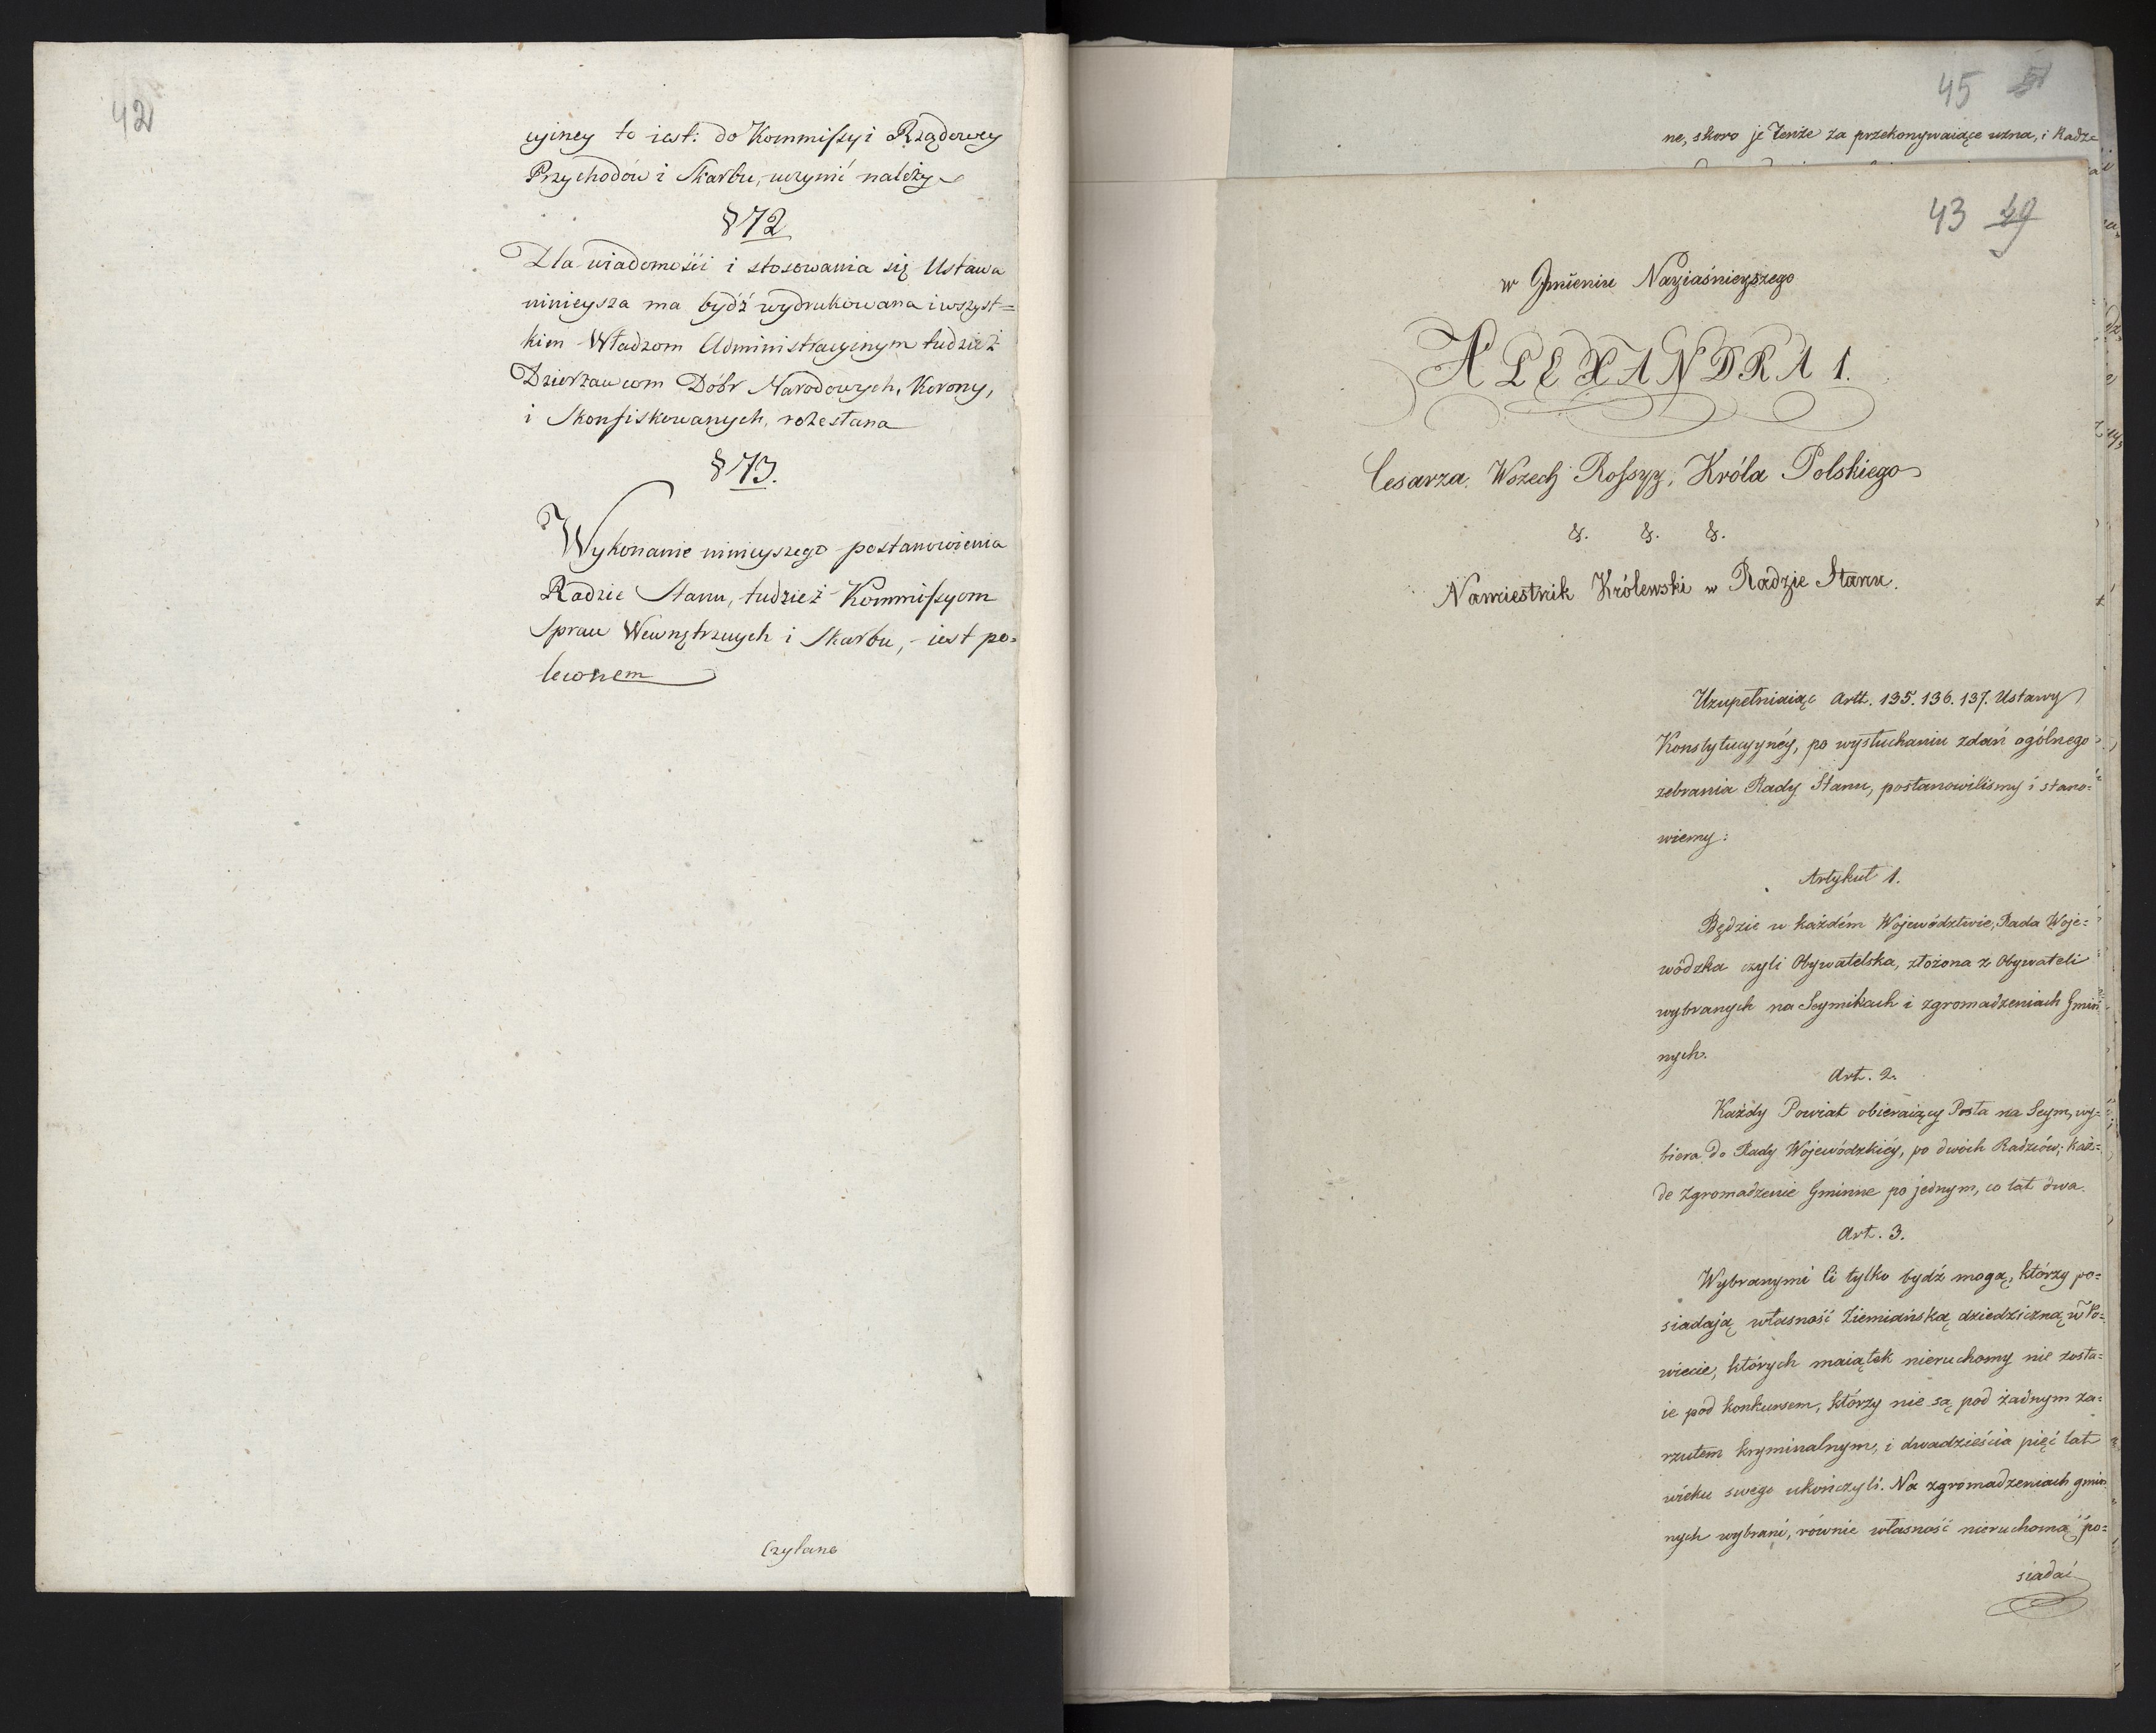 42
cyiney to iest: do Kommissyi Rządowey
Przychodów i Skarbu, uczynić należy
§ 72
Dla wiadomości i stosowania się Ustawa
ninieysza ma bydź wydrukowana i wszyst=
kim Władzom Administracyinym tudzież
Dzierżawcom Dóbr Narodowych, Korony,
i Skonfiskowanych, rozesłana
§ 73.
Wykonanie ninieyszego postanowienia
Radzie Stanu, tudzież Kommissyom
Spraw Wewnętrznych i Skarbu, iest po=
lecone
Czytane
45
ne, skoro je Tenże za przekonywaiące uzna, i Radze
43 49
w Jmieniu Nayiaśnieyszego
ALEXANDRA 1.
Cesarza Wszech Rossyy, Króla Polskiego
&. &. &.
Namiestnik Królewski w Radzie Stanu.
Uzupełniaiąc Artt. 135. 136. 137. Ustawy
Konstytucyynéy, po wysłuchaniu zdań ogólnego
zebrania Rady Stanu, postanowiliśmy i stano=
wiemy:
Artykuł 1.
Będzie w każdém Województwie, Rada Woje=
wódzka czyli Obywatelska, złożona z Obywateli
wybranych na Seymikach i zgromadzeniach Gmin
nych.
Art. 2.
Każdy Powiat obieraiący Posła na Seym, wy=
biera do Rady Wojewódzkiéy, po dwóch Radzców; każ=
de zgromadzenie Gminne po jednym, co lat dwa.
Art. 3.
Wybranymi Ci tylko bydź mogą, którzy po=
siadają własność Ziemiańską dziedziczną w Po=
wiecie, których maiątek nieruchomy nie zosta=
ie pod konkursem, którzy nie są pod żadnym za=
rzutem kryminalnym, i dwadzieścia pięć lat
wieku swego ukończyli. Na zgromadzeniach gmin
nych wybrani, równie własność nieruchomą po=
siadać